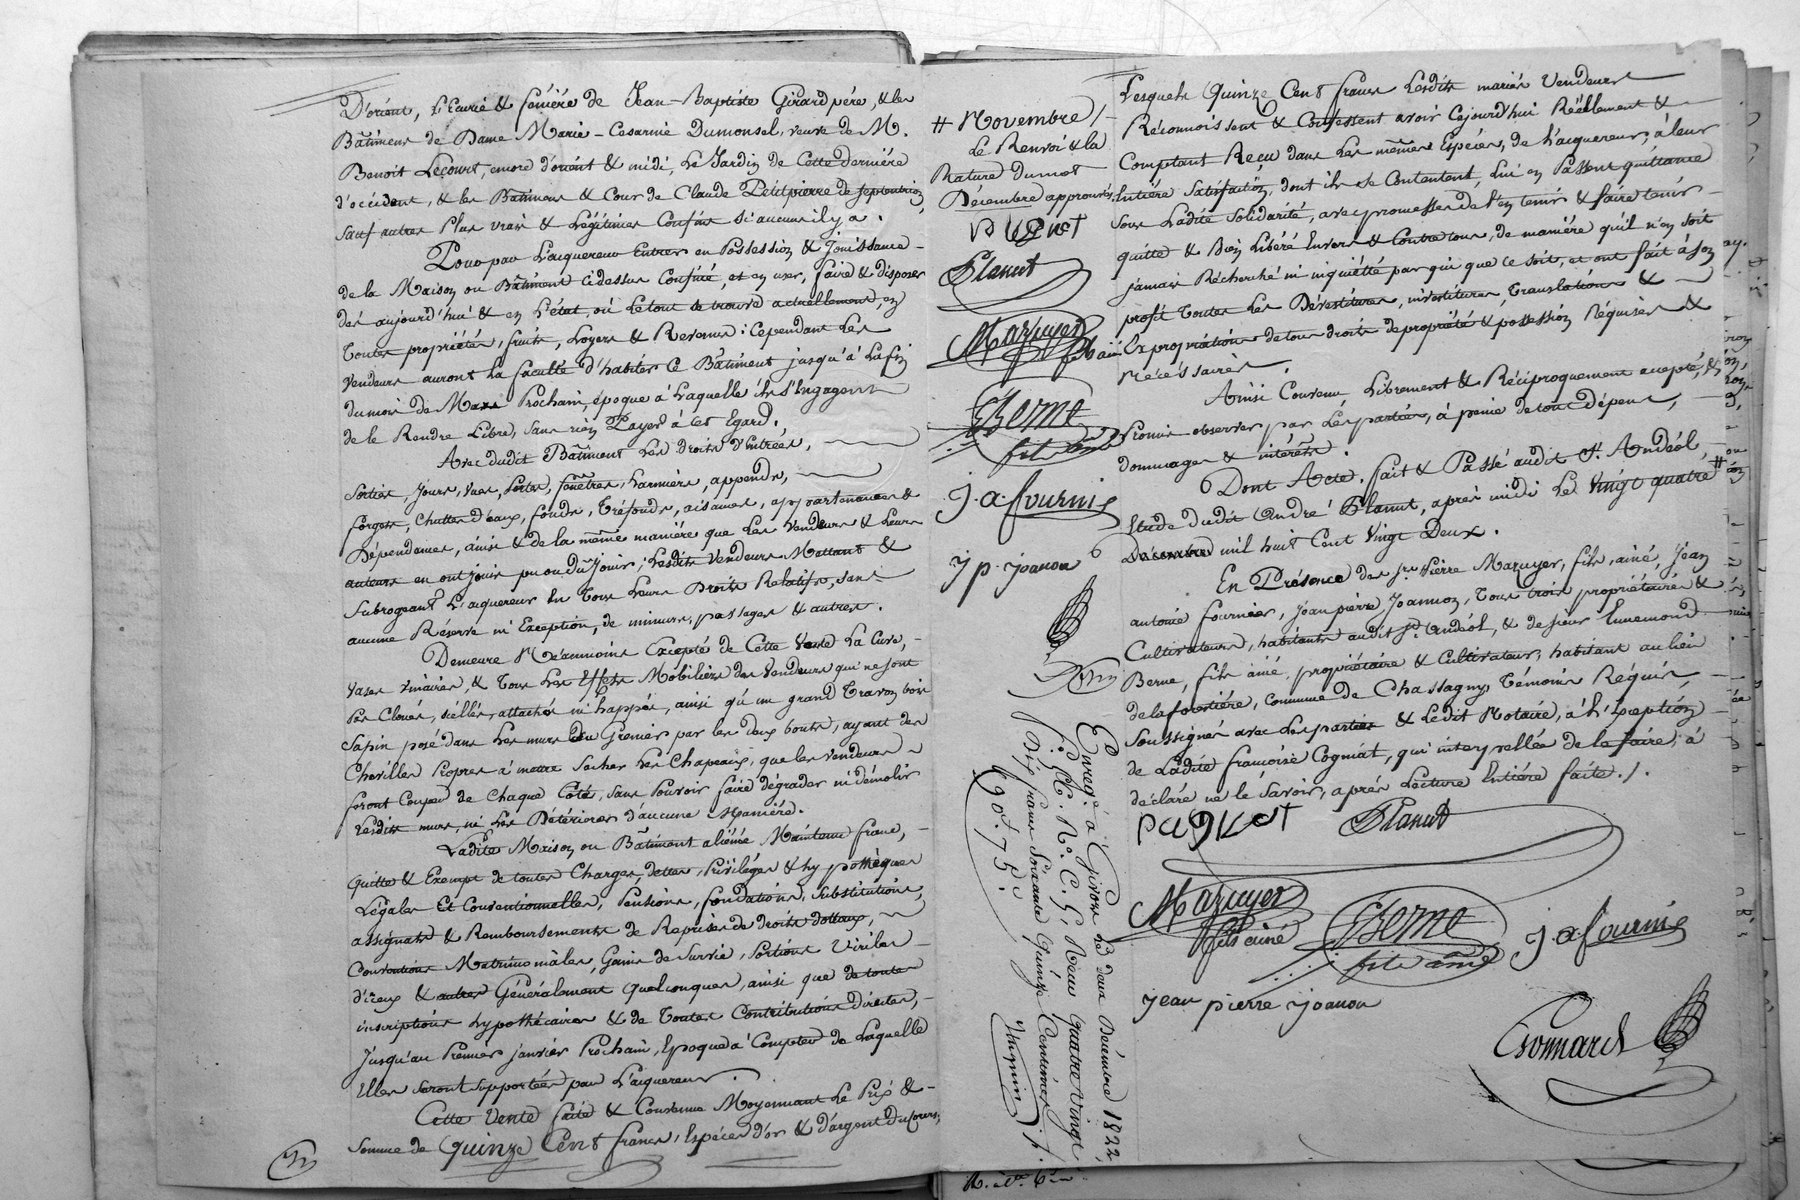 D'orient, L'Ecurie & feniére de Jean-Baptiste Girard pére, & les
Bâtimens de Dame Marie-Cesarine Dumonsel, veuve de M.
Benoit Lecourt, encore d'orient & midi, Le Jardin de Cette derniére
d'occident, & les Bâtimens & Cour de Claude Petitpierre de septentrion,
Sauf autres Plus vrais & Légitimes Confins si aucuns il y a.
Pour par L'acquereur Entrer en Possession & Jouissance
de la Maison ou Bâtiment cidessus Confiné, et en user, faire & disposer
dès aujourd'hui & en L'état, où Letout se trouve actuellement, en
toutes propriétés, fruits, Loyers & Revenus: Cependant Les
Vendeurs auront La faculté d'habiter Ce Bâtiment jusqu'à Lafin
du mois de Mars Prochain, époque à Laquelle ils S'Engagent
de le Rendre Libre, Sans rien Payer à cet Egard.
Avec dudit Bâtiment Les droits d'Entrées,
Sorties, Jours, vues, Portes, fenêtres, Larmiers, appends,
forgets, Chuttes d'eaux, fonds, Tréfonds, aisances, appartenances &
Dépendances, ainsi & de la même maniére que Les Vendeurs & Leurs
auteurs en ont jouis pu ou dû Jouir; Lesdits Vendeurs Mettant &
Subrogeant L'aquereur En Tous Leurs Droits Relatifs, sans
aucune Réserve ni Exception, de minuts, passages & autres.
Demeure Néanmoins Excepté de Cette Vente La Cuve,
Vases vinaires, & Tous Les Effets Mobiliérs des Vendeurs qui ne sont
Pas Cloués, scéllés, attachés ni happés, ainsi qu'un grand Travon bois
Sapin posé dans Les murs du Grenier par les deux bouts, ayant des
Chevilles Propres à mettre Sécher Les Chapeaux, que les vendeurs
feront Couper de Chaque Coté, Sans Pouvoir faire dégrader ni démolir
Lesdits murs, ni Les Détériorer d'aucune Maniére.
Ladite Maison ou Bâtiment aliéné Maintenu franc,
Quitte & Exempt de toutes Charges, dettes, Priviléges & hypothèques
Légales Et Conventionnelles, Pensions, fondations, Substitutions,
assignats & Remboursements de Reprises de droits dottaux,
Conventions Matrimoniales, Gains de Survie, Portions Viriles
d'iceux & autres Généralement Quelconques, ainsi que de toutes
inscriptions hypothécaires & de Toutes Contributions Directes,
Jusqu'au Premier Janvier Prochain, Epoque à Compter de Laquelle
Elles Seront supportées par L'aquereur.
Cette Vente faite & Convenue Moyennant Le Prix &
Somme de Quinze Cent francs, Espéces d'or & d'argent du Cours,
# Novembre /
Le Renvoi & la
Rature du mot
Décembre approuvés
PUGNET
Planut
Mazuyer
fils ainé
Berne
fils ainé
j. a. fournie
j p. joanon
Enreg.é à Givors Le deux Décembre 1822,
Reçu Quatre vingt
Dix francs Soixante Quinze Centimes
90f. 75c.
Lesquels Quinze Cent francs Lesdits mariés Vendeurs
Réconnoissent & Confessent avoir Cejourd'hui Réellement &
Comptant Reçu dans Les mêmes Espéces, de L'acquereur, à leur
Entiére Satisfaction, dont ils se Contentent, Lui en Passent quittance
Sous Ladite Solidarité, avec promesses de L'en tenir & faire tenir
quitte & Bien Libéré Envers & Contre tous, de maniére qu'il n'en Soit
jamais Récherché ni inquiétté par qui que ce soit, et ont fait à Son
profit Toutes Les Dévestitures, investitures, Translations &
Expropriations de tous droits de propriété & possession Réquises &
Nécéssaires.
Ainsi Convenu, Librement & Réciproquement accepté, &
Promis observer par Les parties, à peine de tout dépens,
dommages & intérêts.
Dont Acte, fait & Passé audit St. Andéol,
Etude dudit André Planut, aprés midi Le Vingt quatre #
Décembre mil huit Cent Vingt Deux.
En Présence des Srs Pierre Mazuyer, fils, ainé, Jean
antoine fournier, Jean pierre Joannon, Tous trois propriétaires &
Cultivateurs, habitants audit St. Andéol, & de sieur Ennemond
Berne, fils ainé, propriétaire & Cultivateur, habitant au lieu
de la forestiére, commune de Chassagny, Témoins Réquis,
Soussignés avec Les parties & Ledit Notaire, à L'Exeption
de Ladite françoise Cogniat, qui interpellée de le faire, à
déclaré ne le Savoir, aprés Lecture Entiére faite./.
PUGNET
Planut
Mazuyer
fils ainé
Berne
fils ainé
j. a. fournie
jean pierre joanon